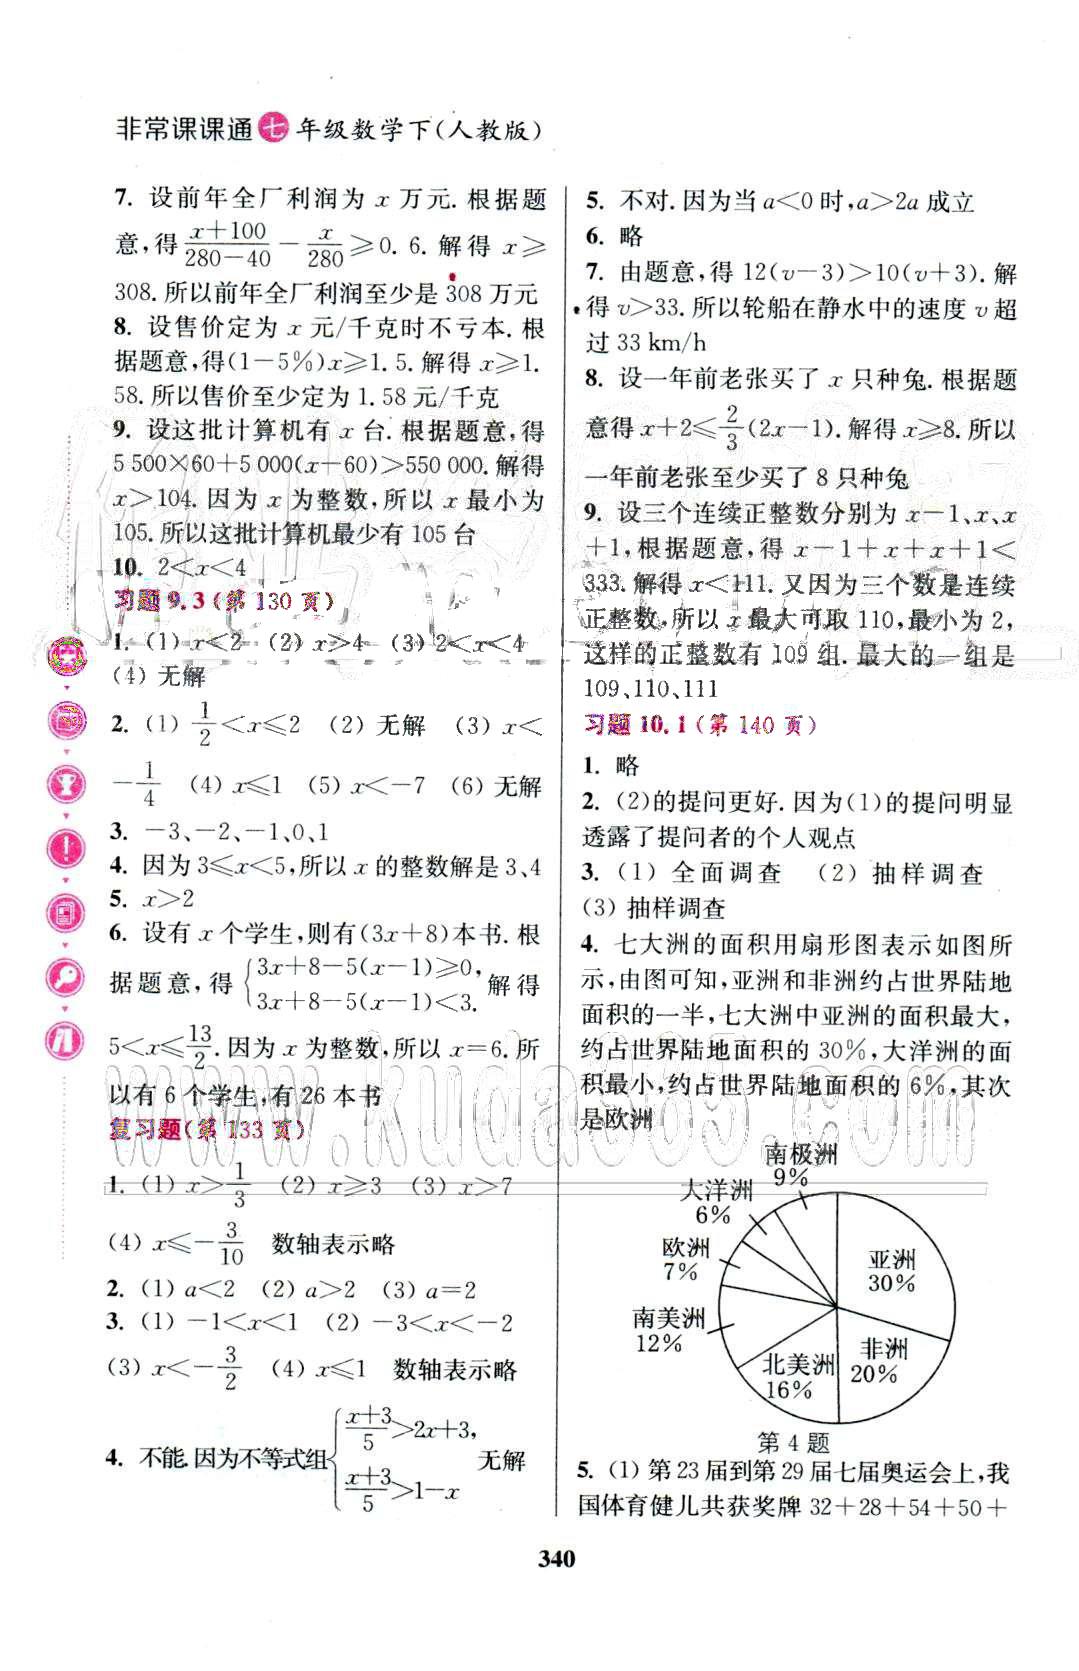 非常课课通七年级数学下(人教版)
7. 设前年全厂利润为 x 万元. 根据题
意,得 \frac{x+100}{280-40} - \frac{x}{280} ≥0. 6. 解得 x≥
308. 所以前年全厂利润至少是 308 万元
8. 设售价定为 x 元/千克时不亏本. 根
据题意,得(1-5%)x≥1. 5. 解得 x≥1.
58. 所以售价至少定为 1. 58 元/千克
9. 设这批计算机有 x 台. 根据题意,得
5 500×60+5 000(x-60)>550 000. 解得
x>104. 因为 x 为整数,所以 x 最小为
105. 所以这批计算机最少有 105 台
10. 2<x<4
习题 9. 3 (第 130 页)
1. (1) x<2 (2) x>4 (3) 2<x<4
(4) 无解
2. (1) \frac{1}{2}<x≤2 (2) 无解 (3) x<
-\frac{1}{4} (4) x≤1 (5) x<-7 (6) 无解
3. -3、-2、-1、0、1
4. 因为 3≤x<5,所以 x 的整数解是 3、4
5. x>2
6. 设有 x 个学生,则有(3x+8)本书. 根
据题意,得 {3x+8-5(x-1)≥0, 解得
3x+8-5(x-1)<3.
5<x≤\frac{13}{2}. 因为 x 为整数,所以 x=6. 所
以有 6 个学生,有 26 本书
复习题(第 133 页)
1. (1) x>\frac{1}{3} (2) x≥3 (3) x>7
(4) x≤-\frac{3}{10} 数轴表示略
2. (1) a<2 (2) a>2 (3) a=2
3. (1) -1<x<1 (2) -3<x<-2
(3) x<-\frac{3}{2} (4) x≤1 数轴表示略
4. 不能. 因为不等式组 {\frac{x+3}{5}>2x+3, 无解
\frac{x+3}{5}>1-x
5. 不对. 因为当 a<0 时,a>2a 成立
6. 略
7. 由题意,得 12(v-3)>10(v+3). 解
得 v>33. 所以轮船在静水中的速度 v 超
过 33 km/h
8. 设一年前老张买了 x 只种兔. 根据题
意得 x+2≤\frac{2}{3}(2x-1). 解得 x≥8. 所以
一年前老张至少买了 8 只种兔
9. 设三个连续正整数分别为 x-1、x、x
+1,根据题意,得 x-1+x+x+1<
333. 解得 x<111. 又因为三个数是连续
正整数,所以 x 最大可取 110,最小为 2,
这样的正整数有 109 组. 最大的一组是
109、110、111
习题 10. 1 (第 140 页)
1. 略
2. (2)的提问更好. 因为(1)的提问明显
透露了提问者的个人观点
3. (1) 全面调查 (2) 抽样调查
(3) 抽样调查
4. 七大洲的面积用扇形图表示如图所
示,由图可知,亚洲和非洲约占世界陆地
面积的一半,七大洲中亚洲的面积最大,
约占世界陆地面积的 30%,大洋洲的面
积最小,约占世界陆地面积的 6%,其次
是欧洲
南极洲
9%
大洋洲
6%
欧洲
7%
南美洲
12%
北美洲
16%
非洲
20%
亚洲
30%
第 4 题
5. (1) 第 23 届到第 29 届七届奥运会上,我
国体育健儿共获奖牌 32+28+54+50+
340
www.kuda365.com